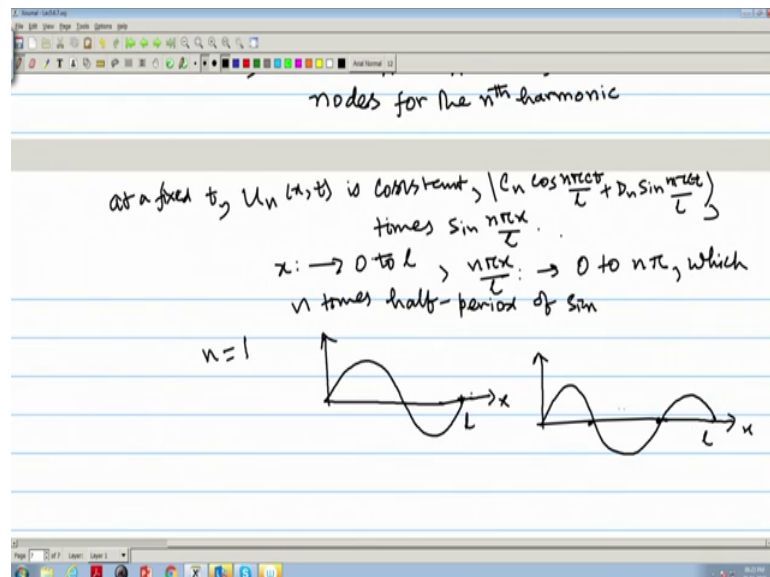 Journal - Lec5.6.7.xoj
File Edit View Page Tools Options Help
Arial Normal 12
nodes for the nth harmonic
at a fixed t, Un (x, t) is constant, (Cn cos nπct/L + Dn sin nπct/L),
times sin nπx/L .
x: → 0 to L , nπx/L : → 0 to nπ, which
n times half-period of sin
n=1
x
L
L
x
Page 7 of 7 Layer: Layer 1